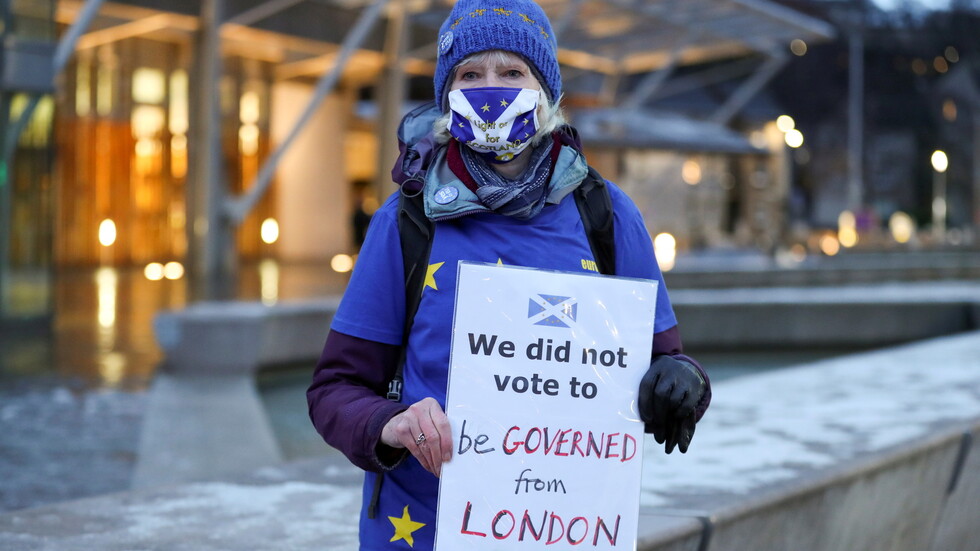 SCOTLAND
euro
We did not
vote to
be GOVERNED
from
LONDON